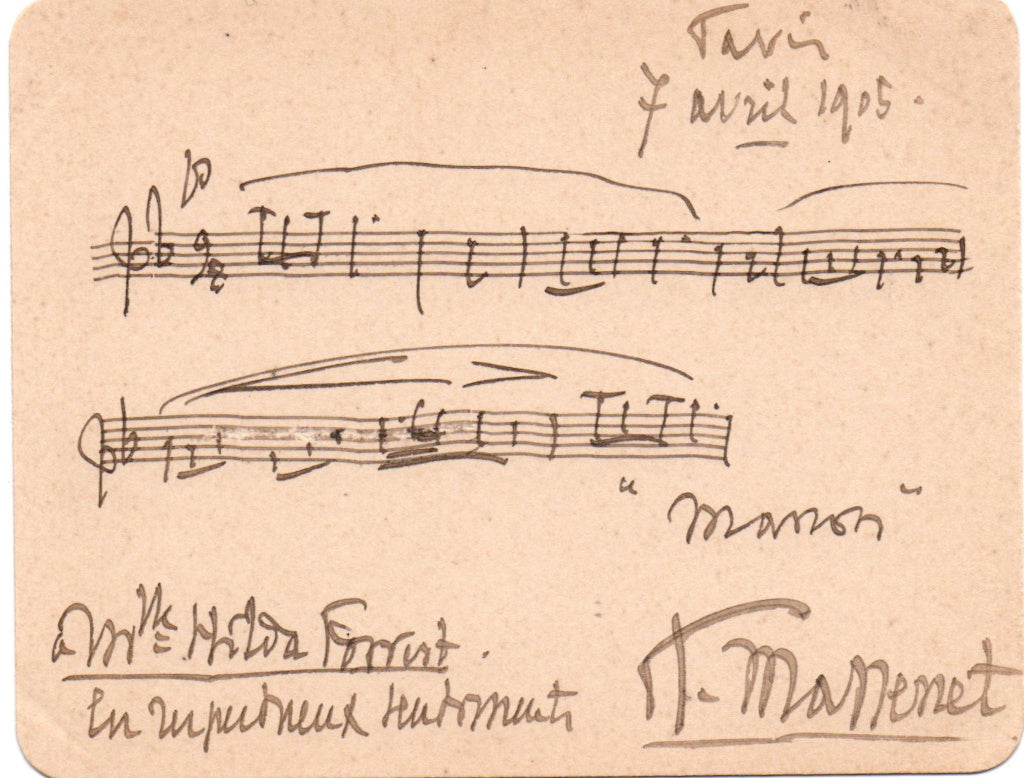 Paris
7 avril 1905.
"Manon"
à Mlle Hilda Forrest.
En respectueux sentiments
J. Massenet